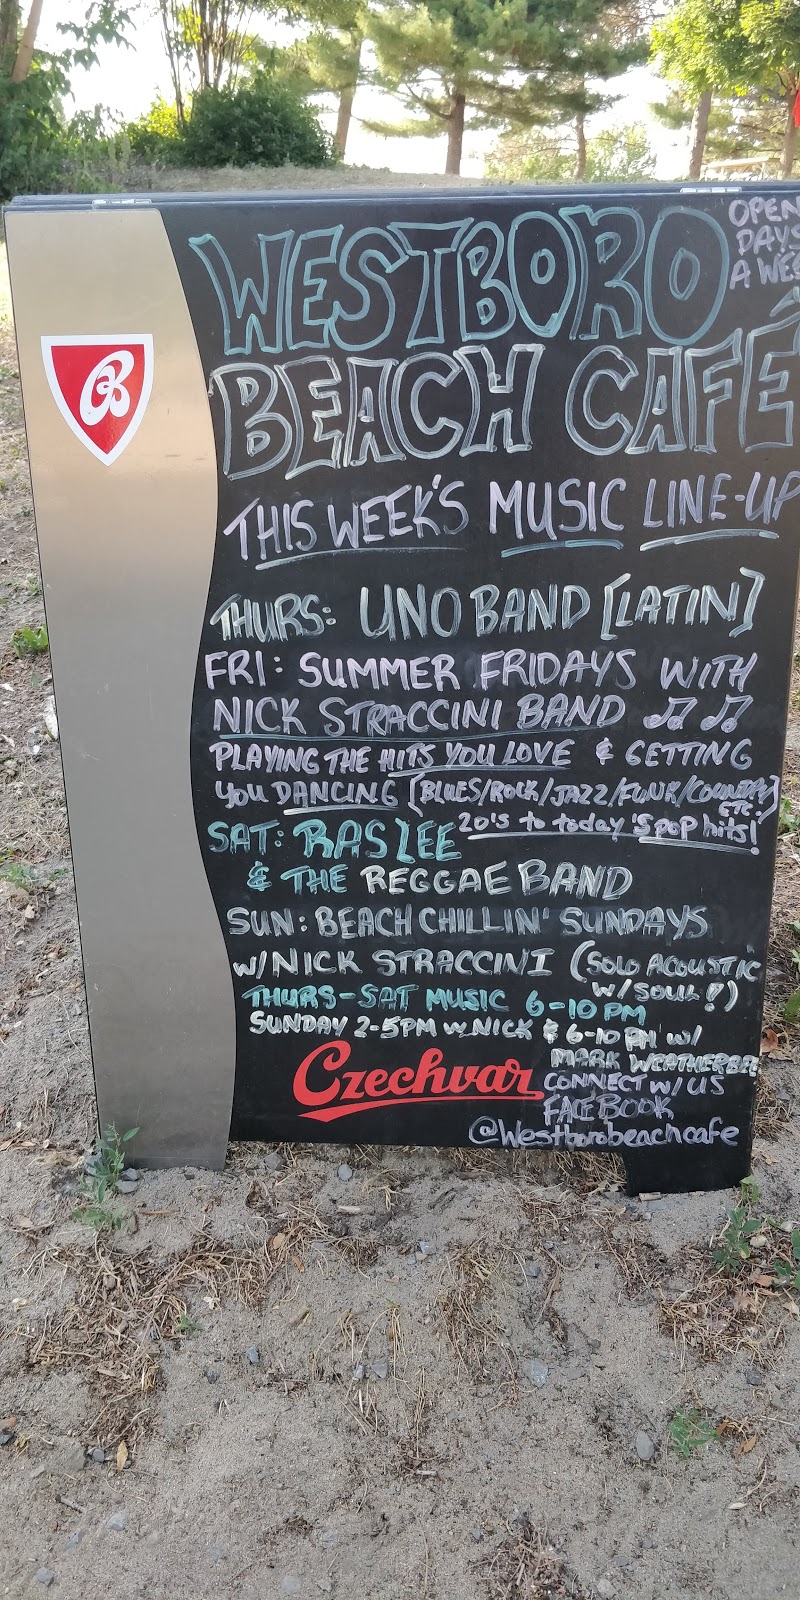 WESTBORO
OPEN
DAYS
A WEE
BEACH CAFÉ
THIS WEEK'S MUSIC LINE-UP
THURS: UNO BAND [LATIN]
FRI: SUMMER FRIDAYS WITH
NICK STRACCINI BAND ♫ ♫
PLAYING THE HITS YOU LOVE & GETTING
YOU DANCING [BLUES/ROCK/JAZZ/FUNK/COUNTRY
ETC.]
20's to today's pop hits!
SAT: RAS LEE
& THE REGGAE BAND
SUN: BEACH CHILLIN' SUNDAYS
W/NICK STRACCINI (SOLO ACOUSTIC
W/SOUL!)
THURS-SAT MUSIC 6-10PM
SUNDAY 2-5PM w NICK & 6-10 PM w/
MARK WEATHERBEE
Czechvar
CONNECT W/US
FACEBOOK
@Westborobeachcafe
B